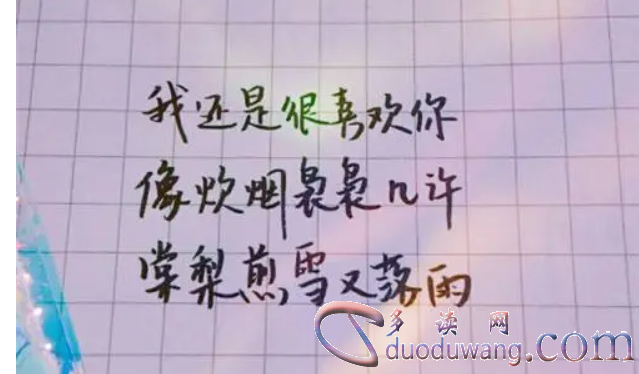 我还是很喜欢你
像炊烟袅袅几许
棠梨煎雪又落雨
多读网
duoduwang.com